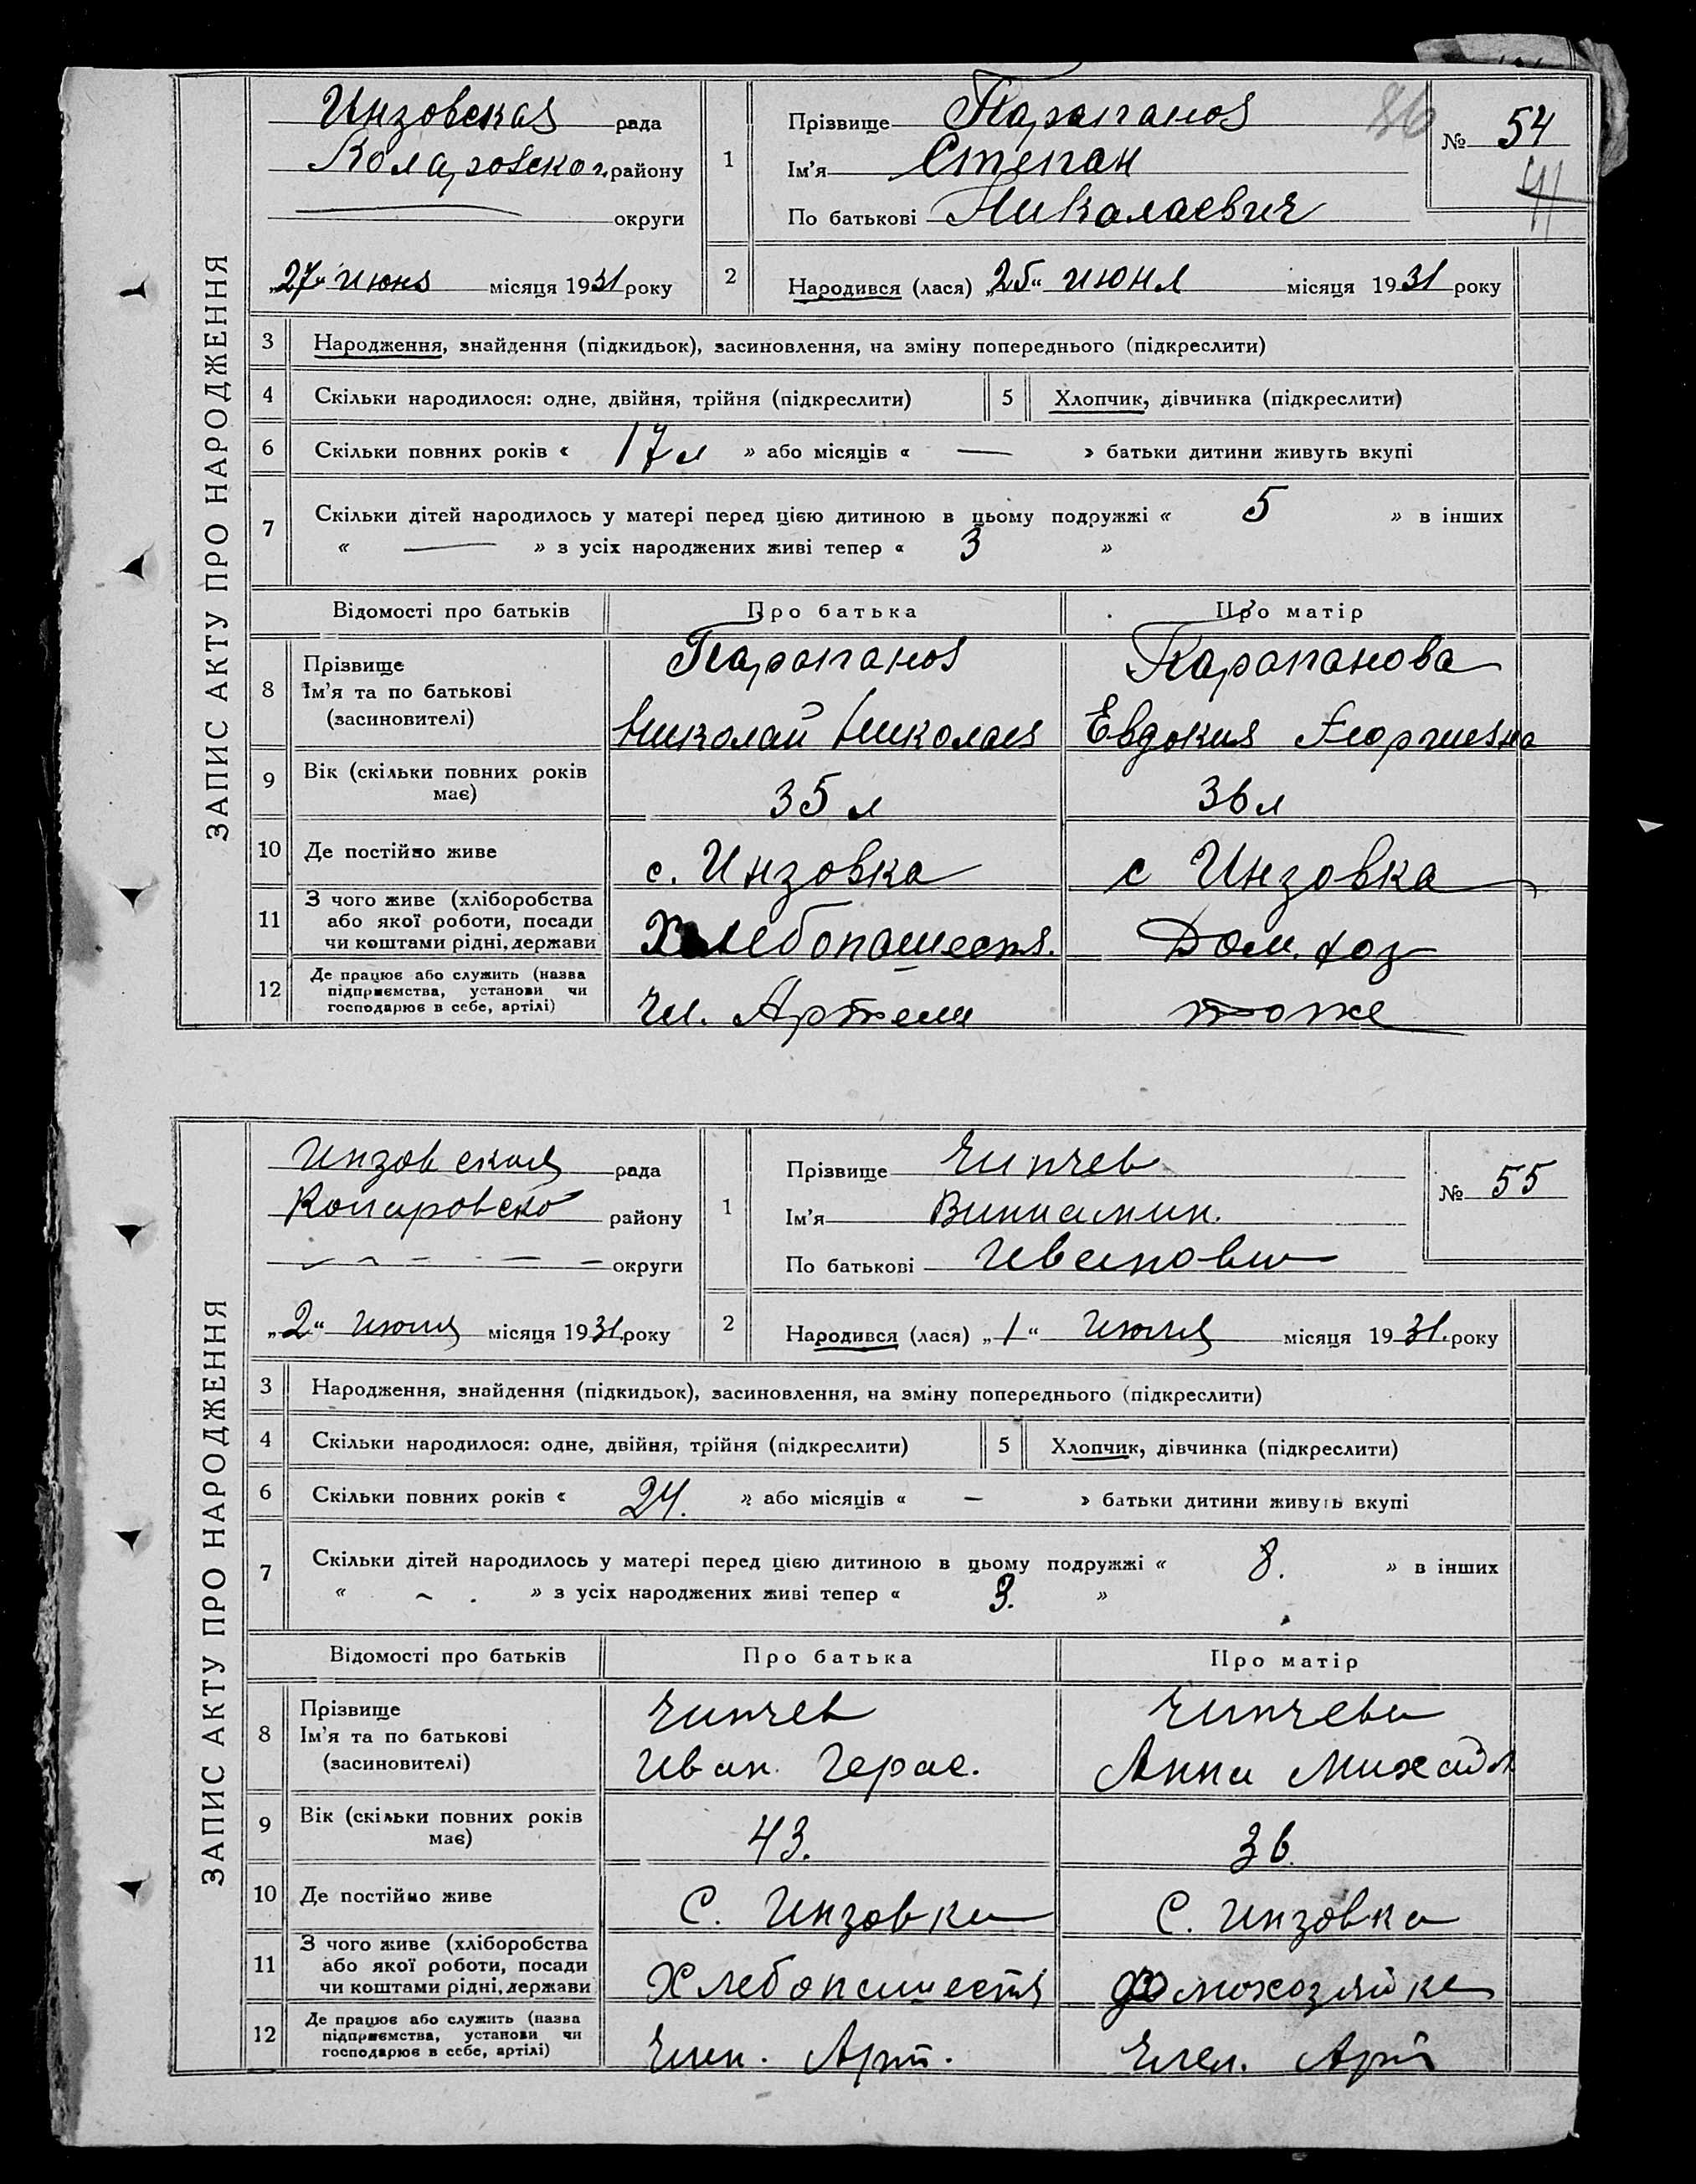 ЗАПИС АКТУ ПРО НАРОДЖЕННЯ
Инзовская рада
Коларовског. району
округи
„27“ июня місяця 1931 року
1
Прізвище Карапанов
Ім'я Степан
По батькові Николаевич
86
№ 54
41
2
Народився (лася) „25“ июня місяця 1931 року
3 Народження, знайдення (підкидьок), засиновлення, на зміну попереднього (підкреслити)
4 Скільки народилося: одне, двійня, трійня (підкреслити) 5 Хлопчик, дівчинка (підкреслити)
6 Скільки повних років « 17 л » або місяців « — » батьки дитини живуть вкупі
7 Скільки дітей народилось у матері перед цією дитиною в цьому подружжі « 5 » в інших
« — » з усіх народжених живі тепер « 3 »
Відомості про батьків Про батька Про матір
8 Прізвище Ім'я та по батькові (засиновителі)
Карапанов Карапанова
Николай Николаев Евдокия Георгиевна
9 Вік (скільки повних років має) 35 л 36 л
10 Де постійно живе с. Инзовка с Инзовка
11 З чого живе (хліборобства або якої роботи, посади чи коштами рідні, держави Хлебопашеств. Дом. хоз
12 Де працює або служить (назва підприємства, установи чи господарює в себе, артілі) Чл. Артели тоже
ЗАПИС АКТУ ПРО НАРОДЖЕННЯ
Инзовская рада
Коларовско району
округи
„2“ июля місяця 1931. року
1
Прізвище Чипчев
Ім'я Виниамин.
По батькові Иванович
№ 55
2
Народився (лася) „1“ июля місяця 1931. року
3 Народження, знайдення (підкидьок), засиновлення, на зміну попереднього (підкреслити)
4 Скільки народилося: одне, двійня, трійня (підкреслити) 5 Хлопчик, дівчинка (підкреслити)
6 Скільки повних років « 24. » або місяців « – » батьки дитини живуть вкупі
7 Скільки дітей народилось у матері перед цією дитиною в цьому подружжі « 8. » в інших
« ~ . » з усіх народжених живі тепер « 3. »
Відомості про батьків Про батька Про матір
8 Прізвище Ім'я та по батькові (засиновителі)
Чипчев Чипчева
Иван. Герас. Анна Михайл
9 Вік (скільки повних років має) 43. 36.
10 Де постійно живе С. Инзовка С. Инзовка
11 З чого живе (хліборобства або якої роботи, посади чи коштами рідні, держави Хлебопашеств домохозяйка
12 Де працює або служить (назва підприємства, установи чи господарює в себе, артілі) Член. Арт. Член. Арт